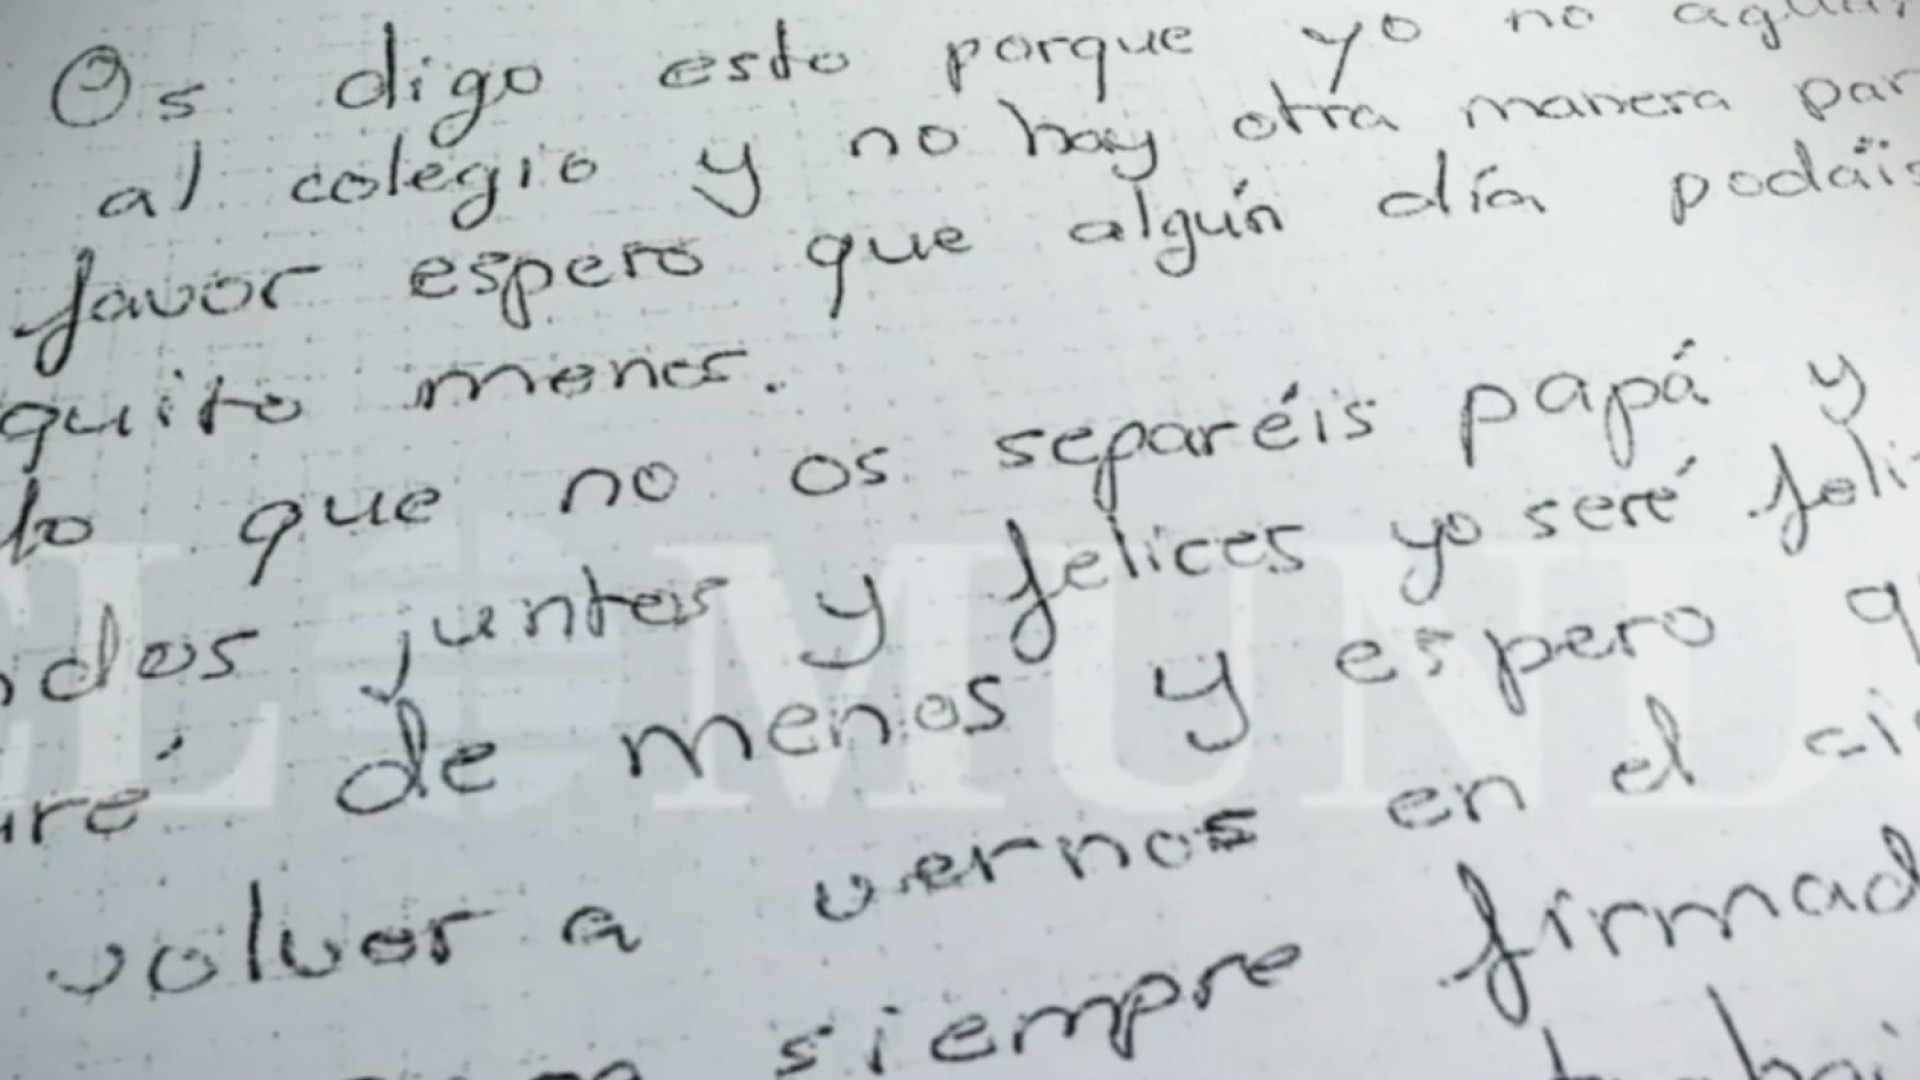 Os digo esto porque yo no
al colegio y no hay otra manera
favor espero que algún día podáis
quito menos.
que no os separéis papá y
juntos y felices yo seré
de menos y espero
volver a vernos en el
siempre
EL MUND